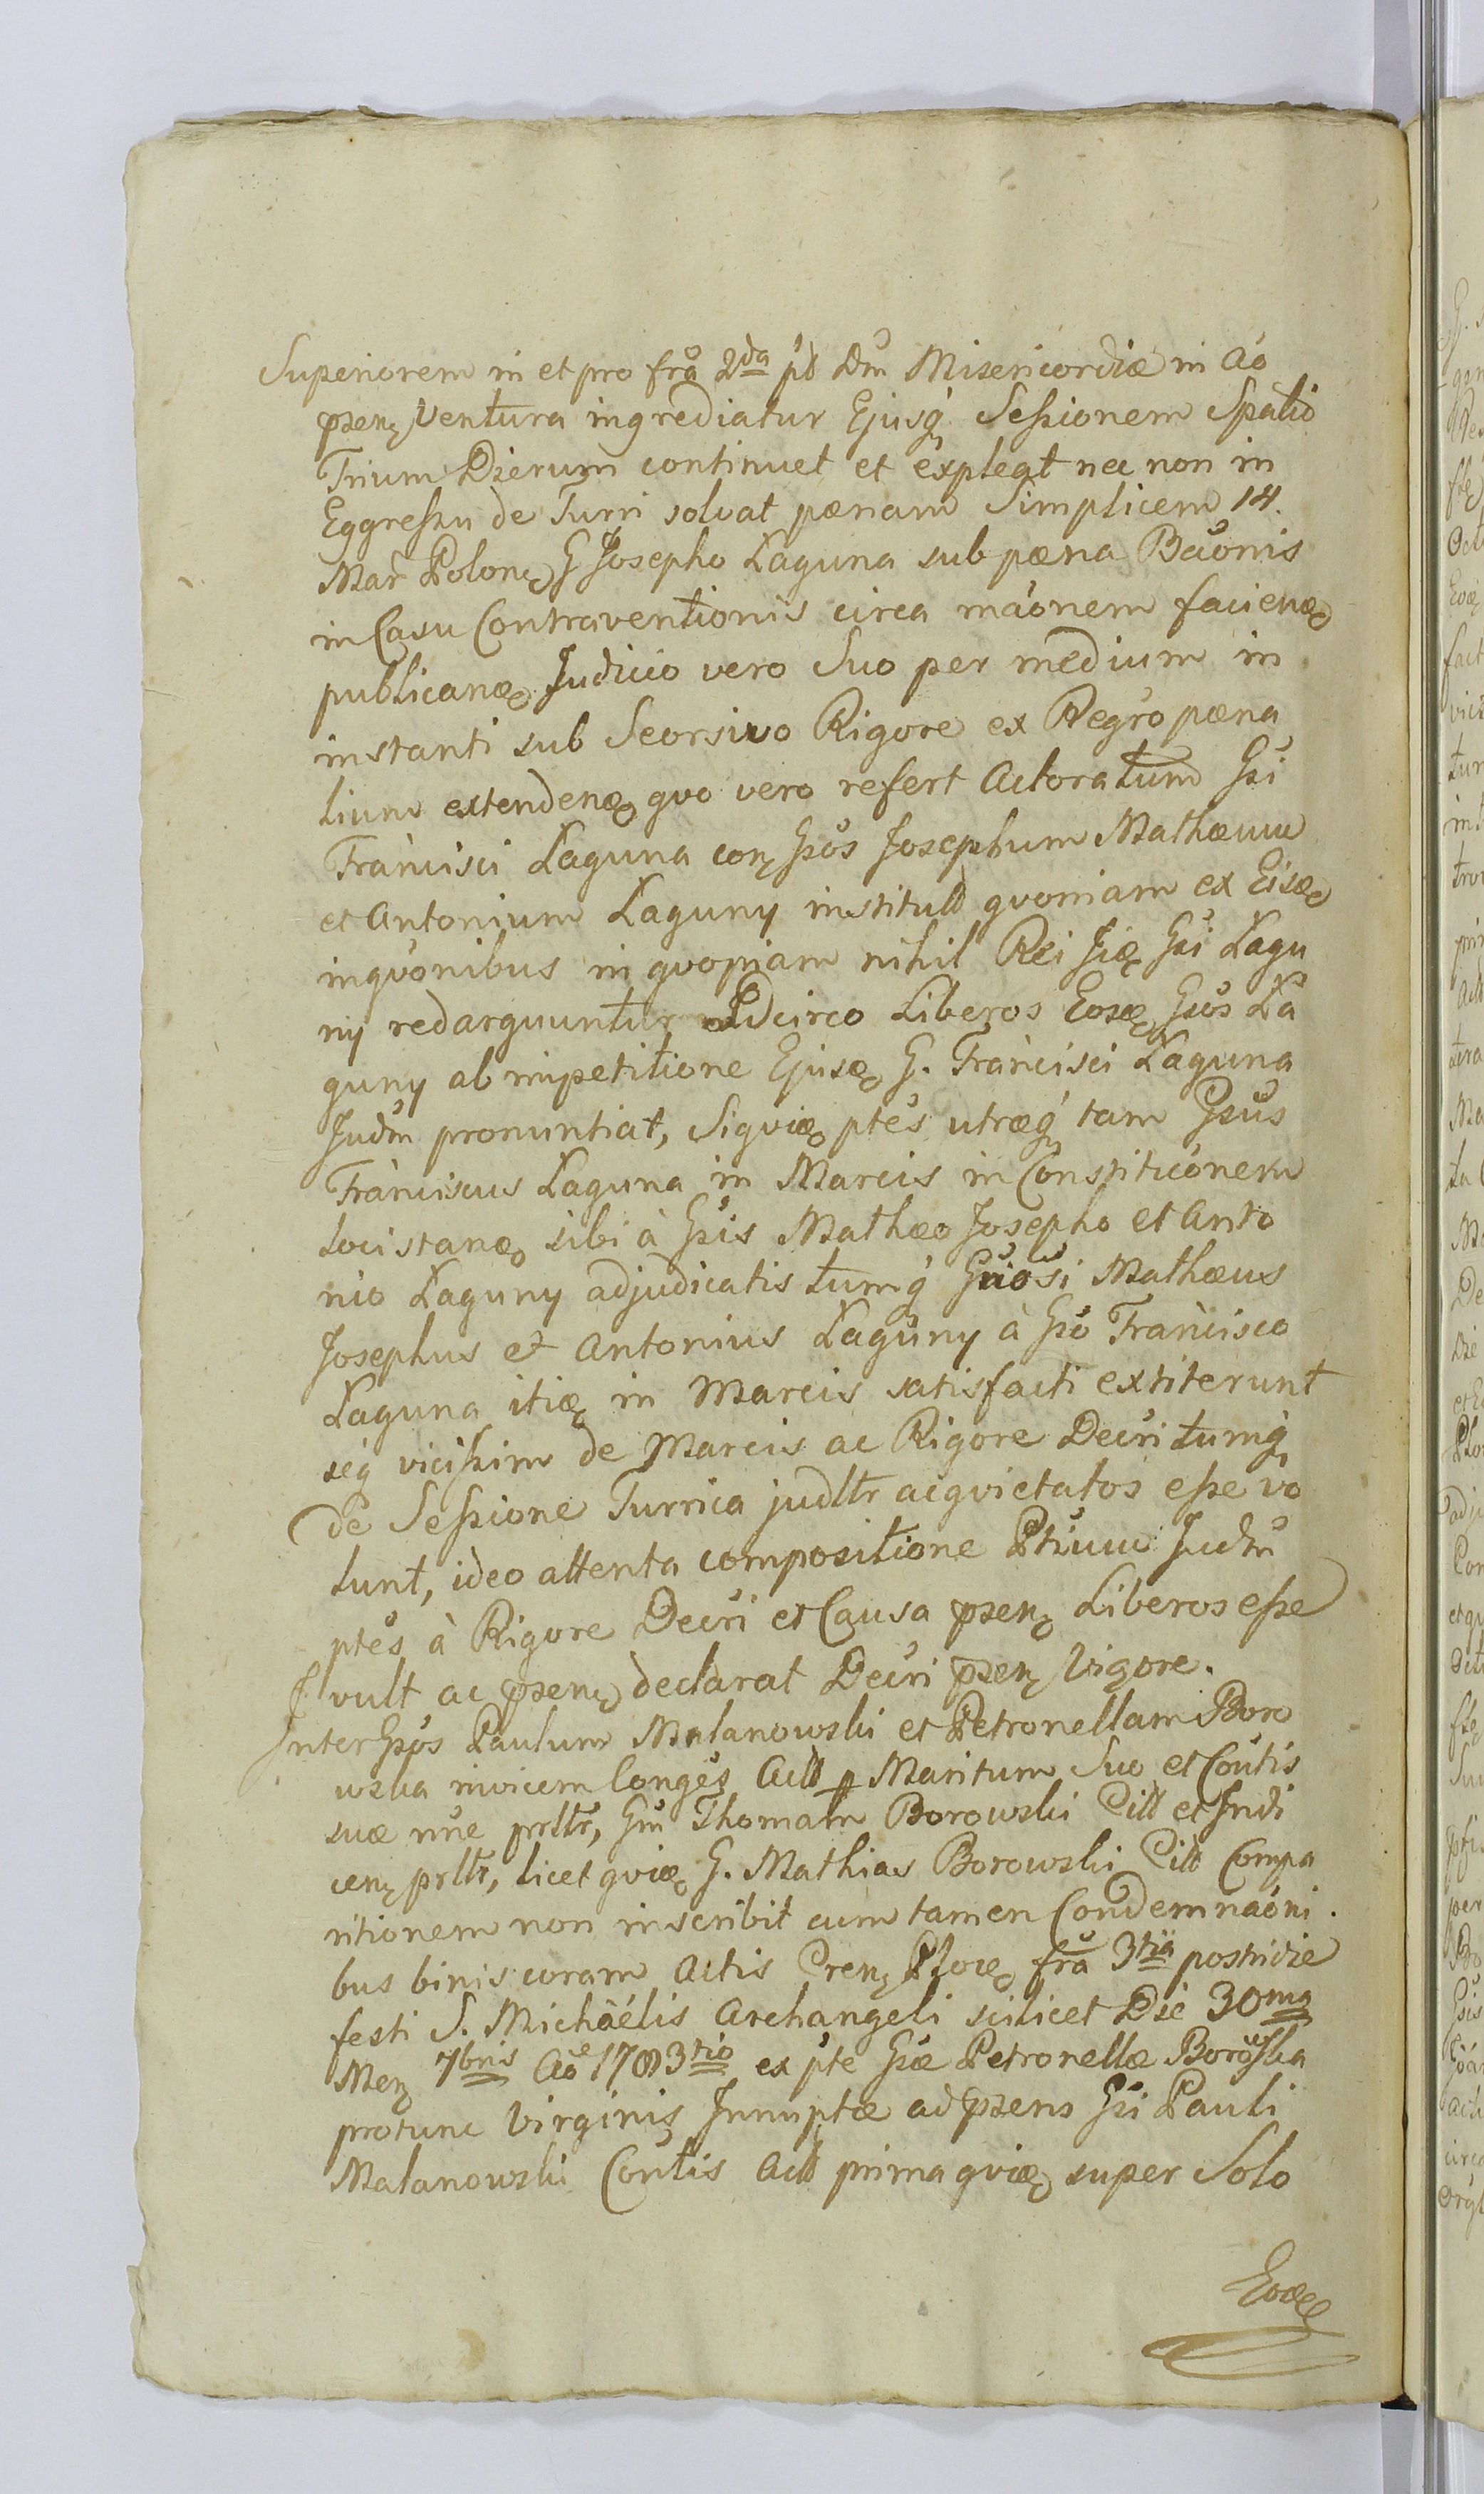 Superiorem in et pro frã 2da pt Dm̃ Misericordiæ in Ao
pzen̨ Ventura ingrediatur Ejusq́ Seſsionem Spatio
Trium Dierum continuet et expleat nec non in
Eggreſsu de Turri solvat pænam Simplicem 14.
Mar̃ Polon̨ G Josepho Laguna sub pæna Bãonis
in Casu Contraventionis circa mãonem facienæ
publicanæ Judicio vero Suo per medium in
instanti sub Seorsivo Rigore ex Regr̃o pæna
lium extendenæ qvo vero refert Actoratum Gsi
Francisci Laguna con̨ Gsõs Josephum Mathæum
et Antonium Laguny institutt qvoniam ex Eisæ
inqvõnibus in qvopiam nihil Rei Jiæ Gsi Lagu
ny redarguuntur Idcirco Liberos Eosæ Gsõs La
guny ab impetitione Ejusæ G. Francisci Laguna
Judm̃ pronuntiat, Siqviæ ptẽs utræq́ tam Gsũs
Franciscus Laguna in Marcis in Constitũonem
Loci stanæ sibi à Gsĩs Mathæo Josepho et Anto
nio Laguny adjudicatis tumq́ Gnõsi Mathæus
Josephus et Antonius Laguny à Gsõ Francisco
Laguna itiæ in Marcis satisfacti extiterunt
seq́ viciſsim de Marcis ac Rigore Decr̃i tumq́
de Seſsione Turrica judltr acqvietatos eſse vo
lunt, ideo attenta compositione Ptiũm Judm̃
ptẽs à Rigore Decr̃i et Causa pzen̨ Liberos eſse
vult ac pzen̨ declarat Decr̃i pzen̨ Vigore.
Inter Gsõs Paulum Malanowski et Petronellam Boro
wska invicem Congẽs Actt p Maritum Suo et Coñtis
suæ nñe prltr, Gm̃ Thomam Borowski Citt et Judi
cen̨ prltr, licet qviæ G. Mathias Borowski Citt Compa
ritionem non inscribit cum tamen Condemnaõni
bus binis coram Actis Cren̨ Plocen̨ frã 3tia postridie
festi S. Michaëlis Archangeli scilicet Die 30ma
Men̨ 7bris Ao 1783tio ex pte Gsæ Petronellæ Borowska
protunc Virginis Innuptæ ad pzens Gsi Pauli
Malanowski Coñtis Actt prima qviæ super Solo
Eoæ